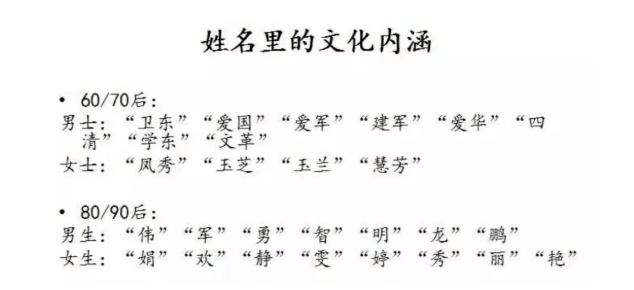 姓名里的文化内涵
• 60/70后：
男士：“卫东”“爱国”“爱军”“建军”“爱华”“四
清”“学东”“文革”
女士：“凤秀”“玉芝”“玉兰”“慧芳”
• 80/90后：
男生：“伟”“军”“勇”“智”“明”“龙”“鹏”
女生：“娟”“欢”“静”“雯”“婷”“秀”“丽”“艳”